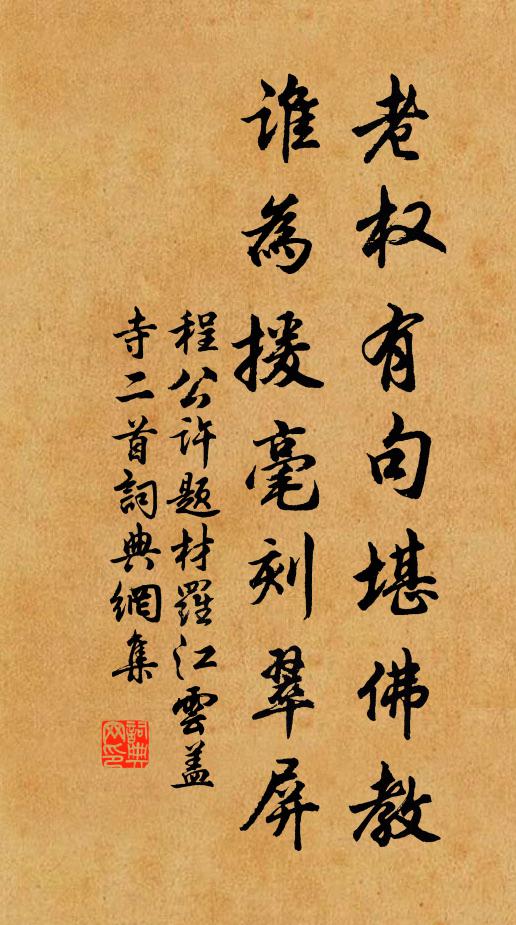 老权有句堪佛教
谁為援毫刻翠屏
程公许题材羅江雲盖
寺二首詞典網集
詞典网印